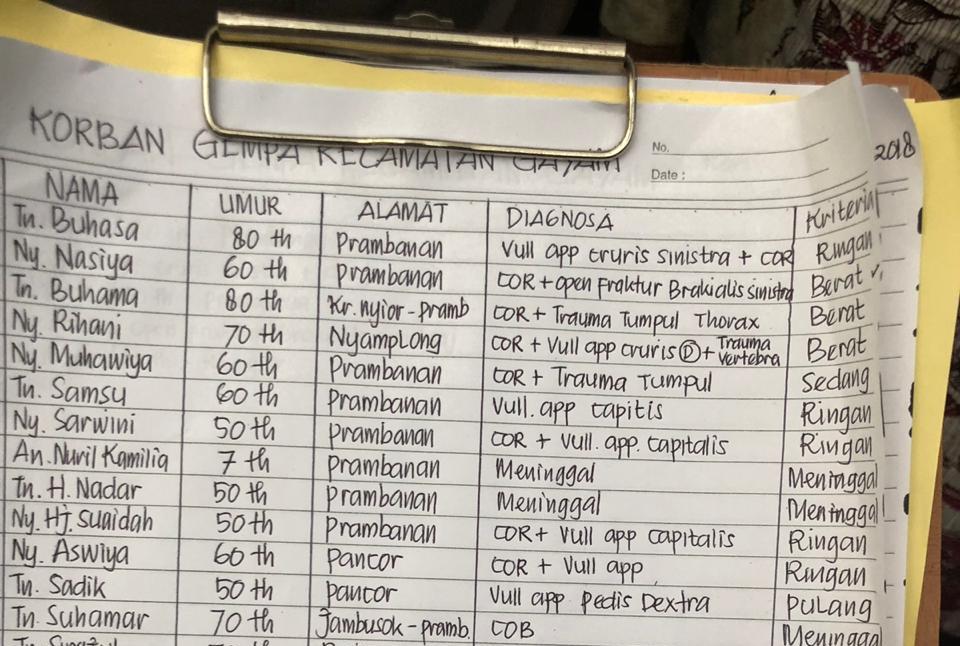 KORBAN GEMPA KECAMATAN GAYAM
No.
Date :
2018
NAMA UMUR ALAMAT DIAGNOSA Kriteria
Tn. Buhasa 80 th Prambanan Vull app cruris sinistra + COR Ringan
Ny. Nasiya 60 th Prambanan COR + open Fraktur Brakialis sinistra Berat
Tn. Buhama 80 th Kr. nyior - pramb COR + Trauma Tumpul Thorax Berat
Ny. Rihani 70 th Nyamplong COR + Vull app cruris D + Trauma Vertebra Berat
Ny. Muhawiya 60 th Prambanan COR + Trauma Tumpul Sedang
Tn. Samsu 60 th Prambanan Vull. app capitis Ringan
Ny. Sarwini 50 th Prambanan COR + Vull. app. capitalis Ringan
An. Nuril Kamilia 7 th Prambanan Meninggal Meninggal
Tn. H. Nadar 50 th Prambanan Meninggal Meninggal
Ny. Hj. Suaidah 50 th Prambanan COR + Vull app capitalis Ringan
Ny. Aswiya 60 th Pancor COR + Vull app Ringan
Tn. Sadik 50 th pancor Vull app pedis Dextra pulang
Tn. Suhamar 70 th Jambusok - pramb. COB Meninggal